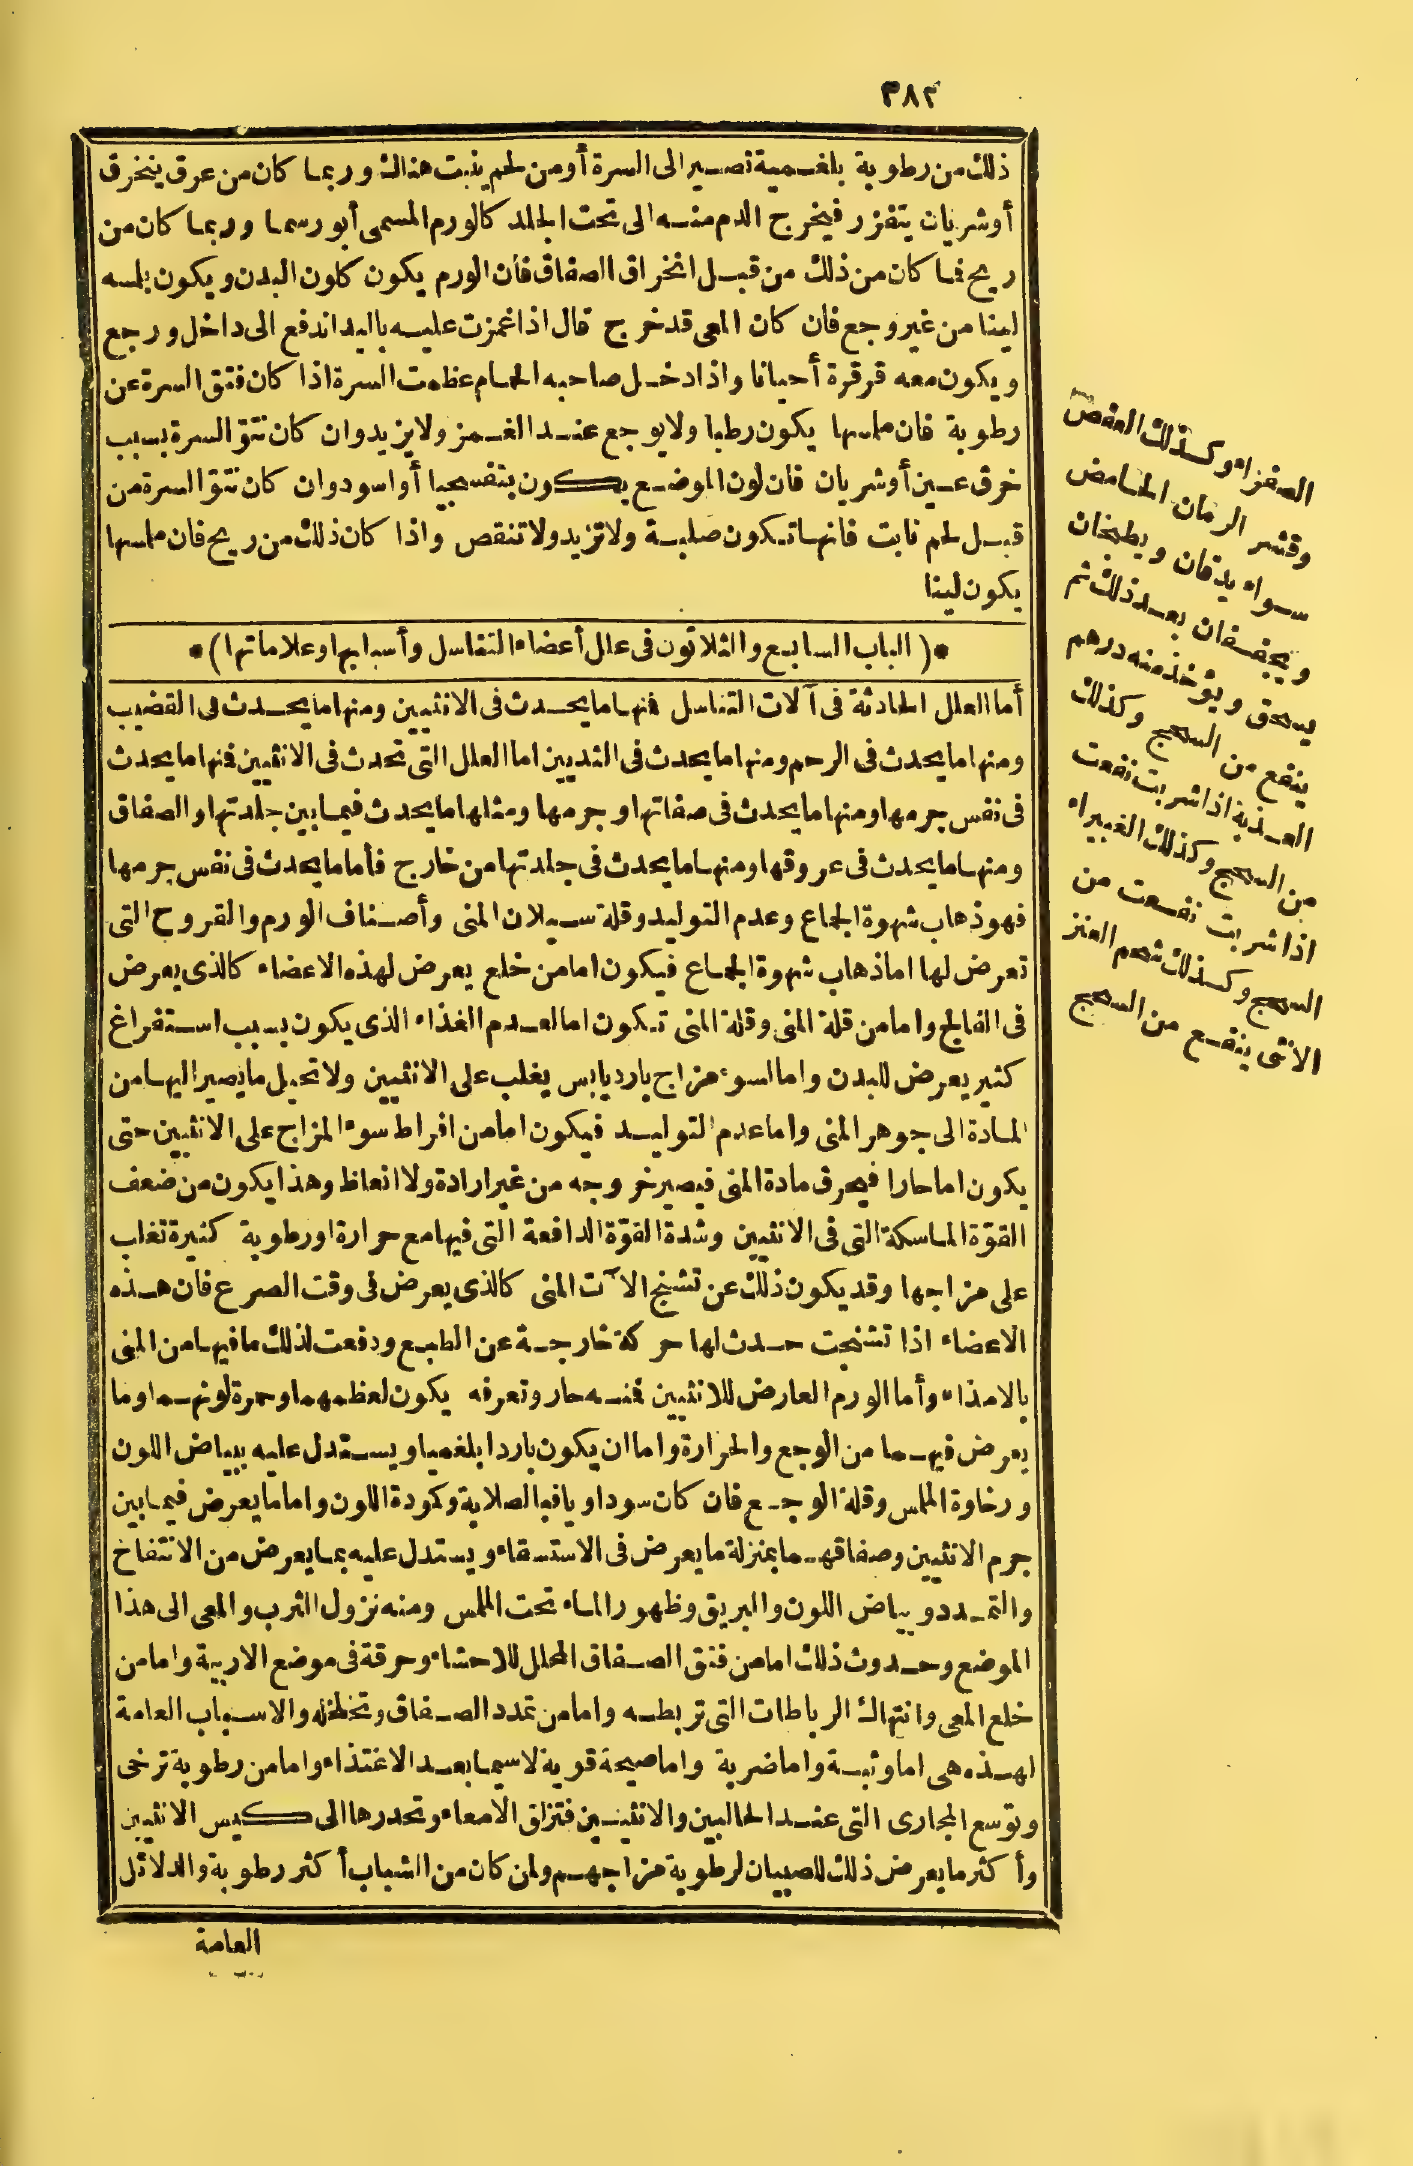 ٣٨٢
ذلك من رطوبة بلغمية تصير الى السرة أومن لحم ينبت هناك وربما كان من عرق ينخرق
أوشريان يتفزر فيخرج الدم منه الى تحت الجلد كالورم المسمى أبو رسما وربما كان من
ريح فما كان من ذلك من قبل انخراق الصفاق فان الورم يكون كلون البدن ويكون بلمسه
لينا من غير وجع فان كان المعى قد خرج قال اذا غمزت عليه باليد اندفع الى داخل ورجع
ويكون معه قرقرة أحيانا واذا دخل صاحبه الحمام عظمت السرة اذا كان فتق السرة عن
رطوبة فان ملمسها يكون رطبا ولا يوجع عند الغمز ولا يزيد وان كان نتو السرة بسبب
خرق عين أوشريان فان لون الموضع يكون بنفسجيا أو اسود وان كان نتو السرة من
قبل لحم نابت فانها تكون صلبة ولا تزيد ولا تنقص واذا كان ذلك من ريح فان ملمسها
يكون لينا
*( الباب السابع والثلاثون فى علل أعضاء التناسل وأسبابها وعلاماتها )*
أما العلل الحادثة فى آلات التناسل فنها ما يحدث فى الانثيين ومنها ما يحدث فى القضيب
ومنها ما يحدث فى الرحم ومنها ما يحدث فى الثديين اما العلل التى تحدث فى الانثيين فنها ما يحدث
فى نفس جرمها ومنها ما يحدث فى صفاتها وجرمها ومثلها ما يحدث فيما بين جلدتها والصفاق
ومنها ما يحدث فى عروقها ومنها ما يحدث فى جلدتها من خارج فأما ما يحدث فى نفس جرمها
فهو ذهاب شهوة الجماع وعدم التوليد وقلة سيلان المنى وأصناف الورم والقروح التى
تعرض لها اما ذهاب شهوة الجماع فيكون اما من خلع يعرض لهذه الاعضاء كالذى يعرض
فى الفالج واما من قلة المنى وقلة المنى تكون اما لعدم الغذاء الذى يكون بسبب استفراغ
كثير يعرض للبدن واما لسوء مزاج بارد يابس يغلب على الانثيين ولا تحيل ما يصير اليها من
المادة الى جوهر المنى واما عدم التوليد فيكون اما من افراط سوء المزاج على الانثيين حتى
يكون اما حارا فيحرق مادة المنى فيصير خروجه من غير ارادة ولا انعاظ وهذا يكون من ضعف
القوّة الماسكة التى فى الانثيين وشدة القوّة الدافعة التى فيها مع حرارة او رطوبة كثيرة تغلب
على مزاجها وقد يكون ذلك عن تشنج الآت المنى كالذى يعرض فى وقت الصرع فان هذه
الاعضاء اذا تشنجت حدث لها حركة خارجة عن الطبع ودفعت لذلك ما فيها من المنى
بالامذاء وأما الورم العارض للانثيين فنه حار وتعرفه يكون لعظمهما وحمرة لونهما وما
يعرض فيهما من الوجع والحرارة واما ان يكون باردا بلغميا ويستدل عليه ببياض اللون
ورخاوة الملمس وقلة الوجع فان كان سوداويا فبالصلابة وكمودة اللون واما ما يعرض فيما بين
جرم الانثيين وصفاقهما بمنزلة ما يعرض فى الاستسقاء ويستدل عليه بما يعرض من الانتفاخ
والتمدد وبياض اللون والبريق وظهور الماء تحت الملمس ومنه نزول الثرب والمعى الى هذا
الموضع وحدوث ذلك اما من فتق الصفاق المحلل للاحشاء وحرقة فى موضع الاربية واما من
خلع المعى وانتهاك الرباطات التى تربطه واما من تمدد الصفاق وتخلخله والاسباب العامة
لهذه هى اما وثبة واما ضربة واما صيحة قوية لاسيما بعد الاغتذاء واما من رطوبة ترخى
وتوسع المجارى التى عند الحالبين والانثيين فتزلق الامعاء وتحدرها الى كيس الانثيين
وأكثر ما يعرض ذلك للصبيان لرطوبة مزاجهم ولمن كان من الشباب أكثر رطوبة والدلائل
العامة
الصفراء وكذلك العفص
وقشر الرمان الحامض
سواء يدقان ويطبخان
ويجففان بعد ذلك ثم
يسحق ويؤخذ منه درهم
ينفع من السحج وكذلك
العذبة اذا شربت نفعت
من السحج وكذلك الغبيراء
اذا شربت نفعت من
السحج وكذلك شحم العنز
الانثى ينفع من السحج